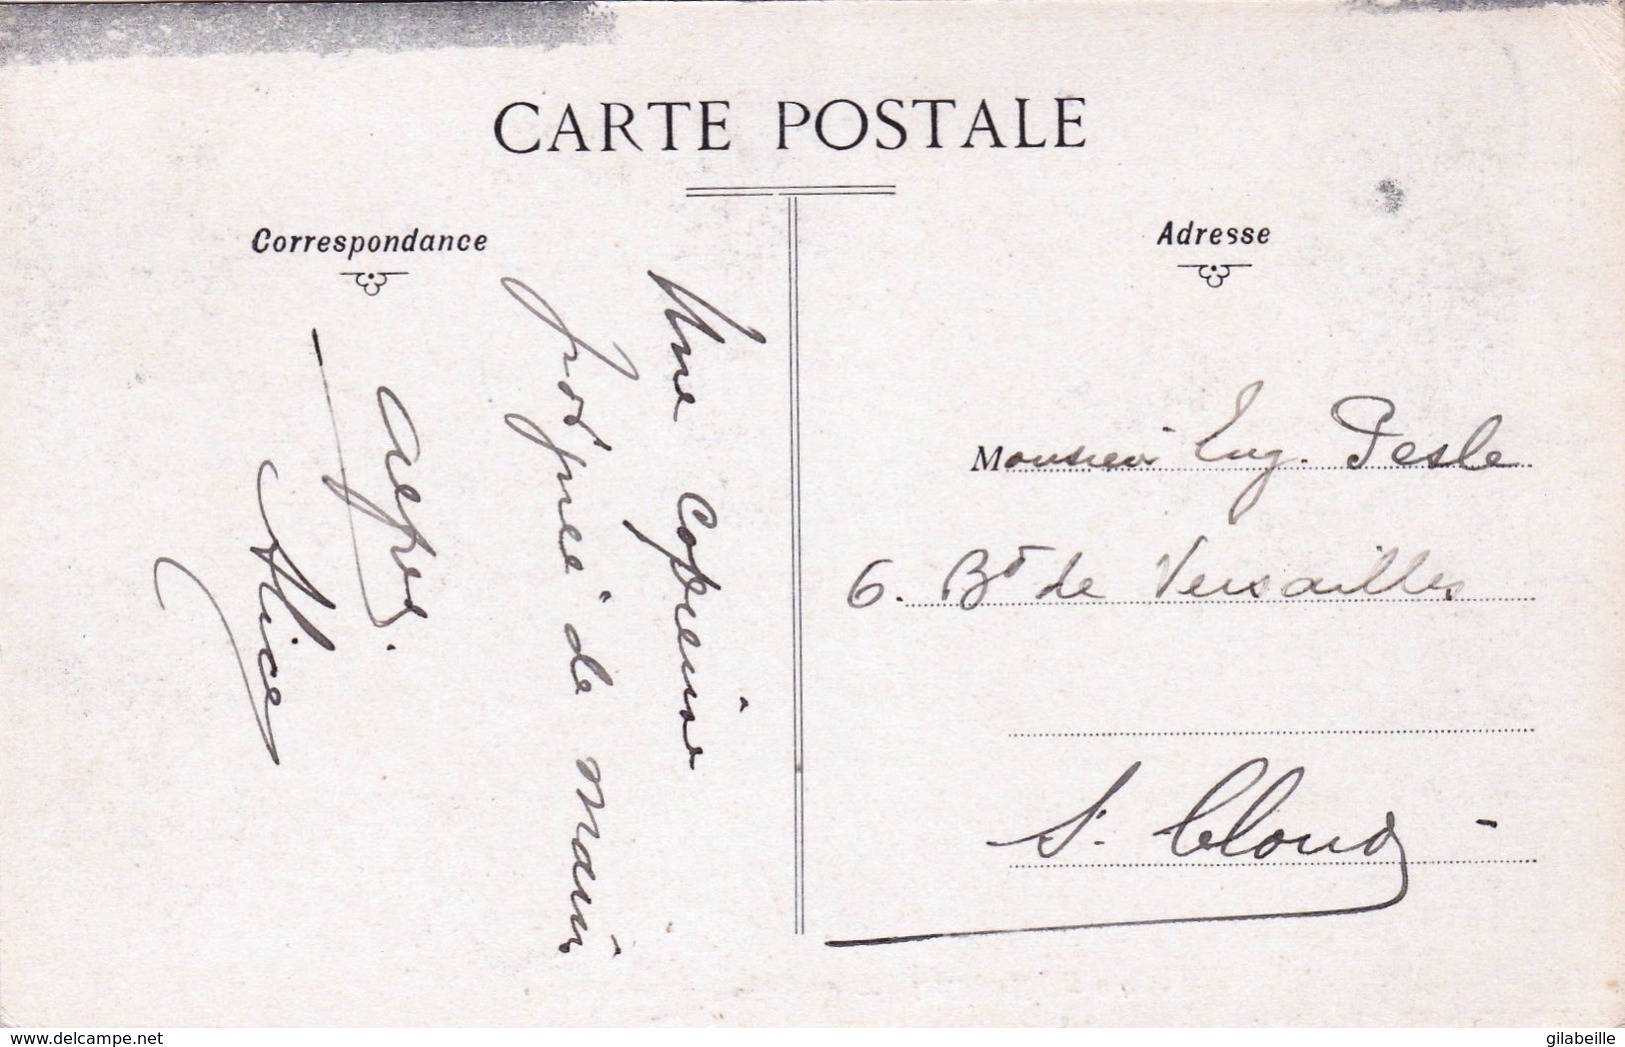 CARTE POSTALE
Correspondance
Adresse
Une
poignée de main
Alice
Monsieur Eug. Pesle
6. Bd de Versailles
St Cloud
www.delcampe.net
gilabeille